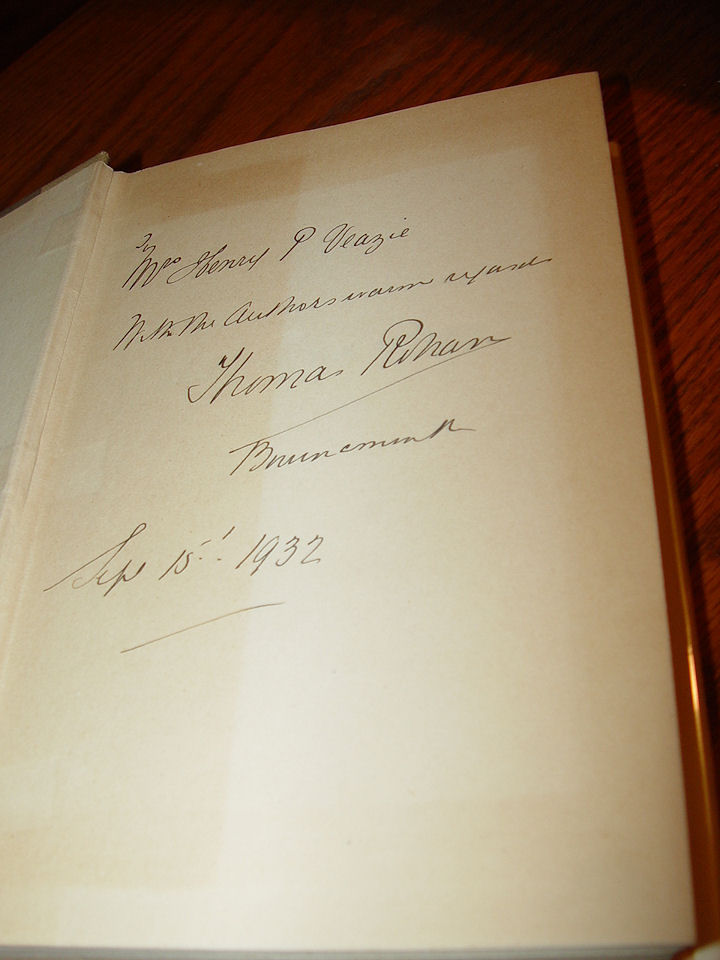 To
Mrs Henry P Veazie
With the Authors warm regards
Thomas Rohan
Bournemouth
Sept 15th 1932